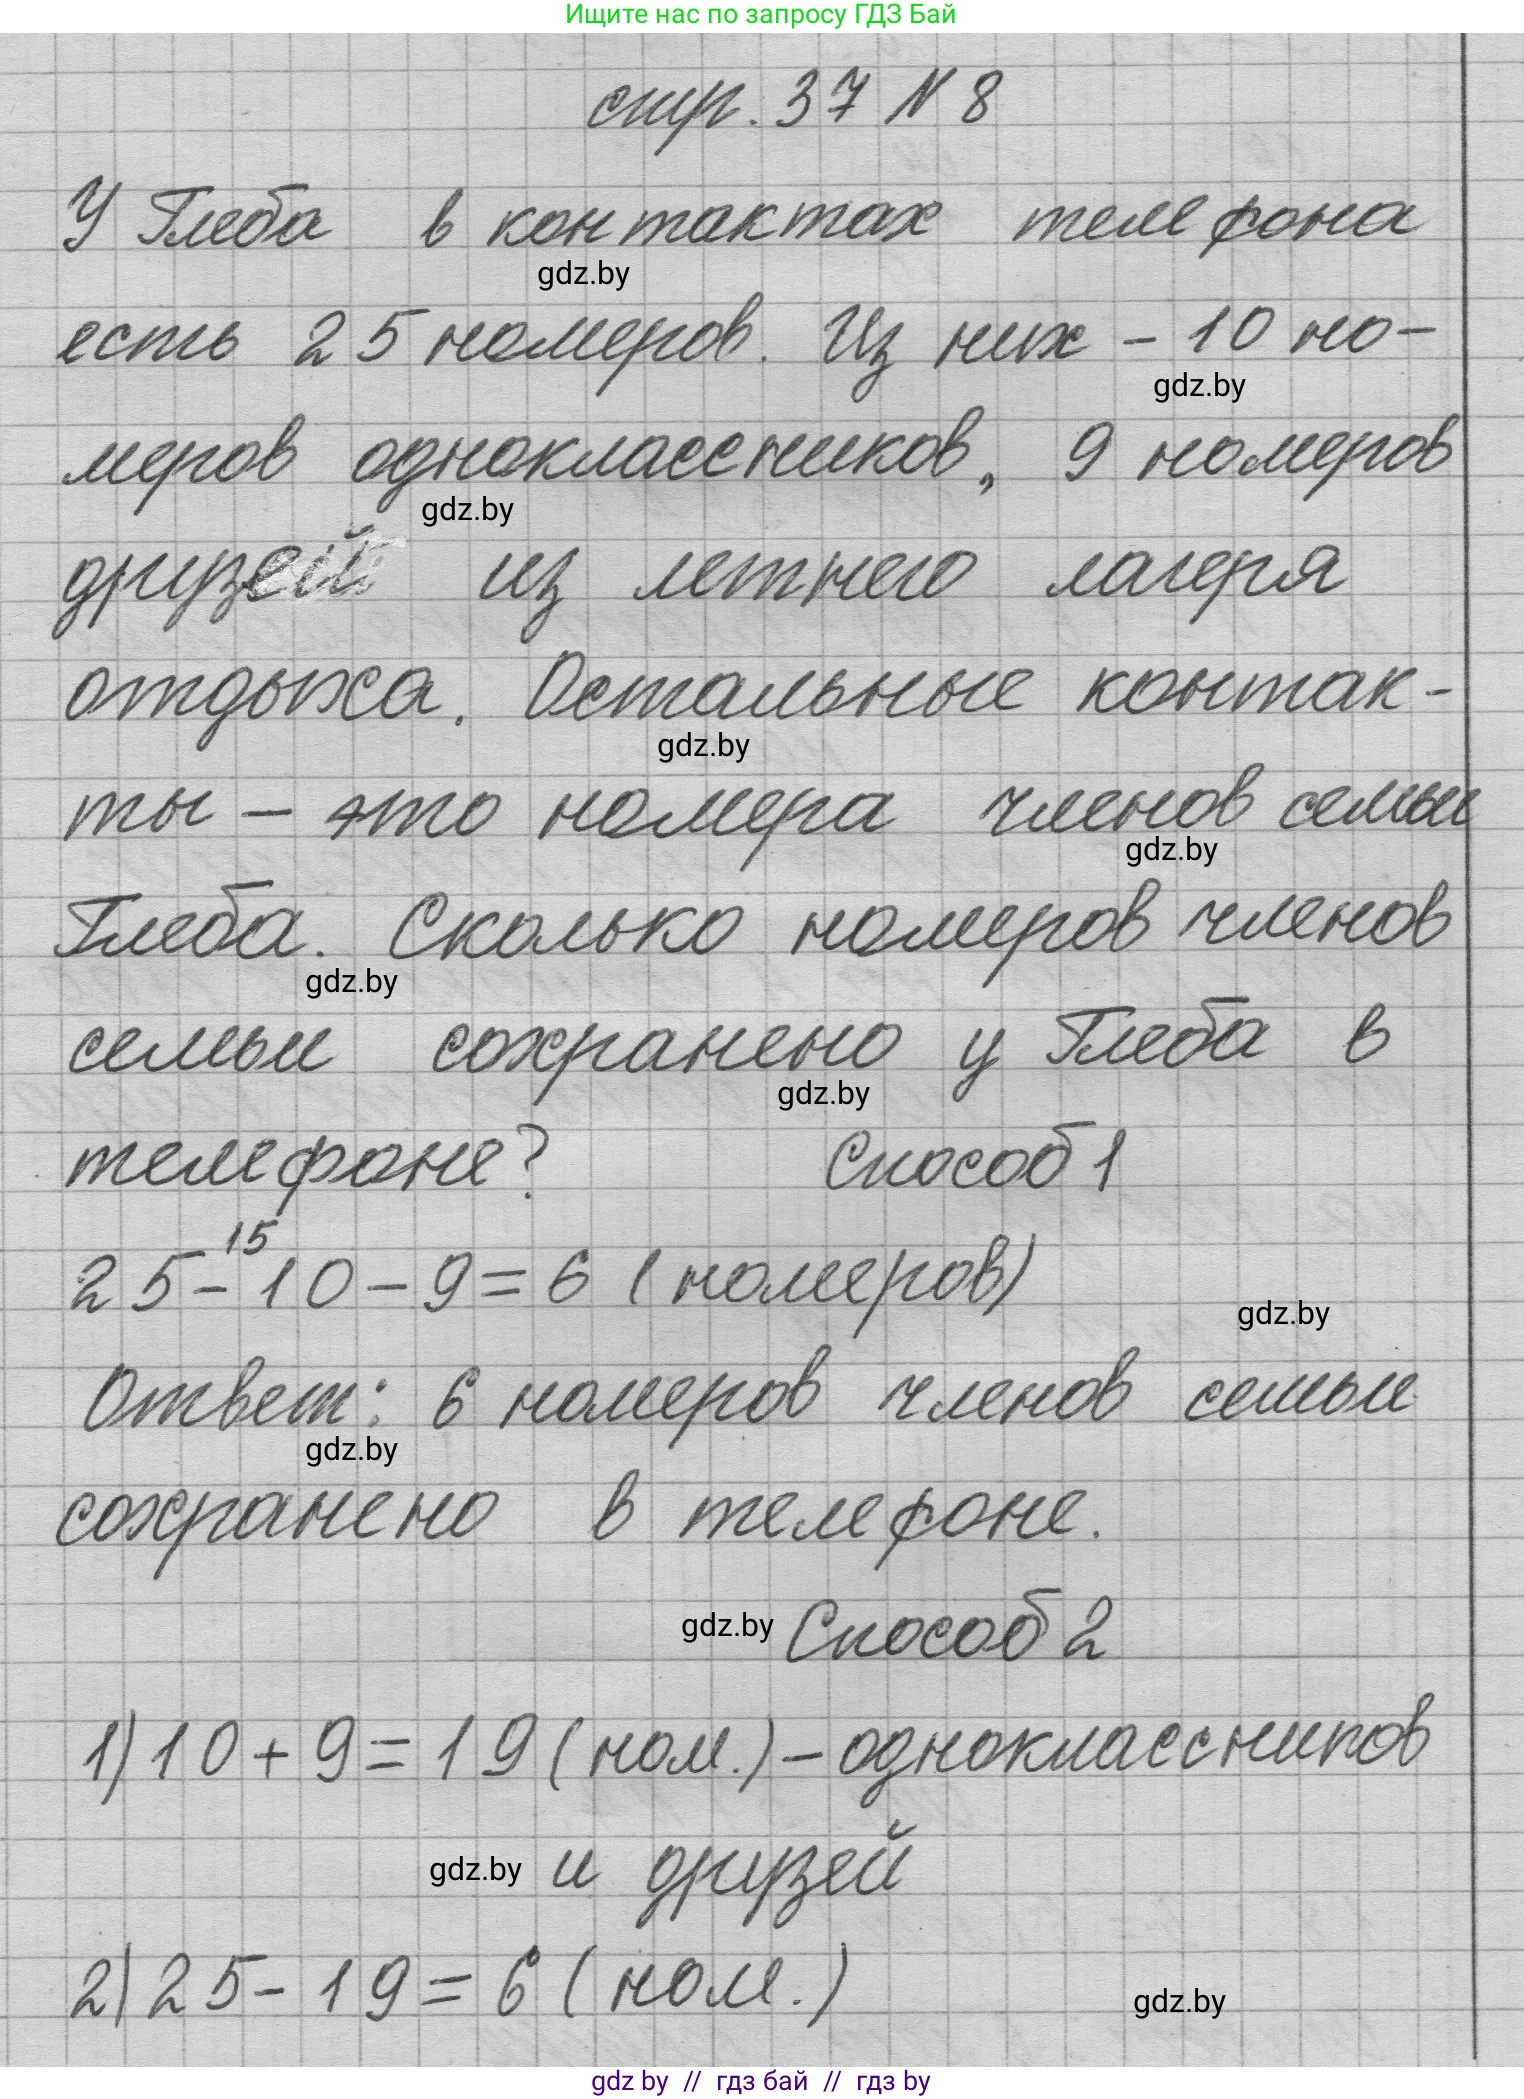 Ищите нас по запросу ГДЗ Бай
стр. 37 № 8
У Глеба в контактах телефона
gdz.by
есть 25 номеров. Из них - 10 но-
gdz.by
меров одноклассников, 9 номеров
gdz.by
друзей из летнего лагеря
отдыха. Остальные контак-
gdz.by
ты - это номера членов семьи
gdz.by
Глеба. Сколько номеров членов
gdz.by
семьи сохранено у Глеба в
gdz.by
телефоне? Способ 1
15
25-10-9=6 (номеров)
gdz.by
Ответ: 6 номеров членов семьи
gdz.by
сохранено в телефоне.
gdz.by Способ 2
1) 10+9=19 (ном.) - одноклассников
gdz.by и друзей
2) 25-19=6 (ном.)
gdz.by
gdz by // гдз бай // гдз by